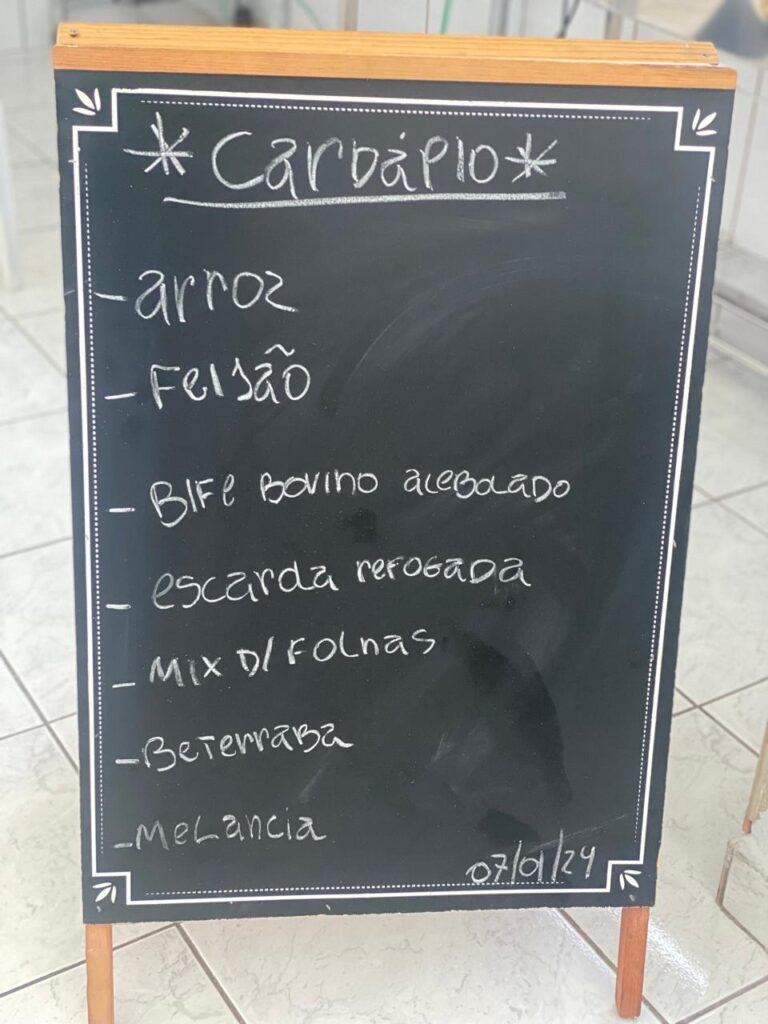 *Cardápio*
- arroz
- Feijão
- Bife bovino acebolado
- escarda refogada
- Mix D/ Folhas
- Beterraba
- Melancia
07/01/24